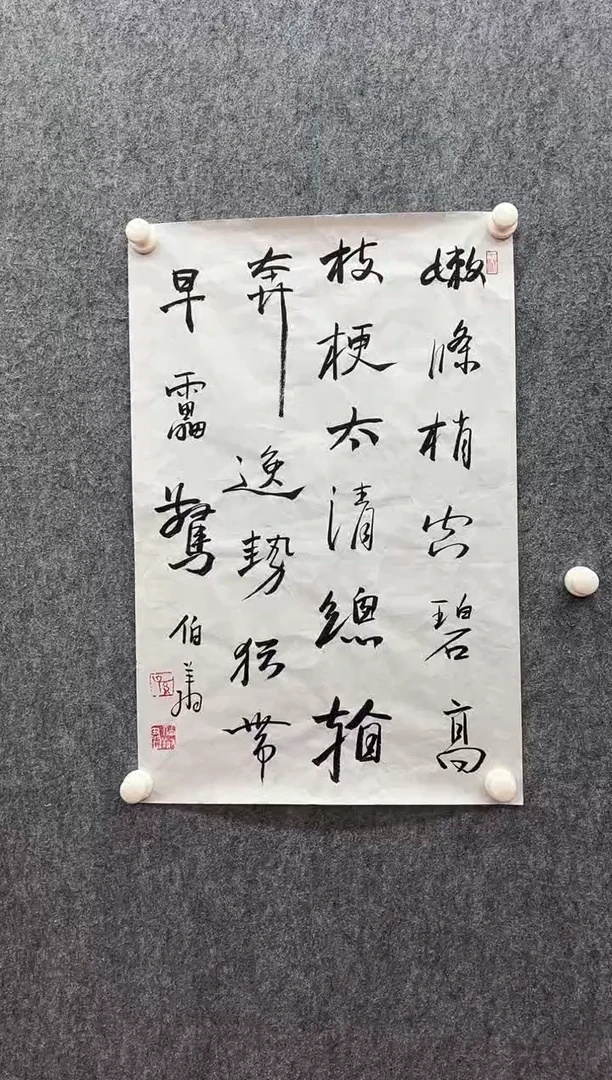 嫩條梢空碧高
枝梗太清總
奔逸勢猶帶
早靁驚
伯翔